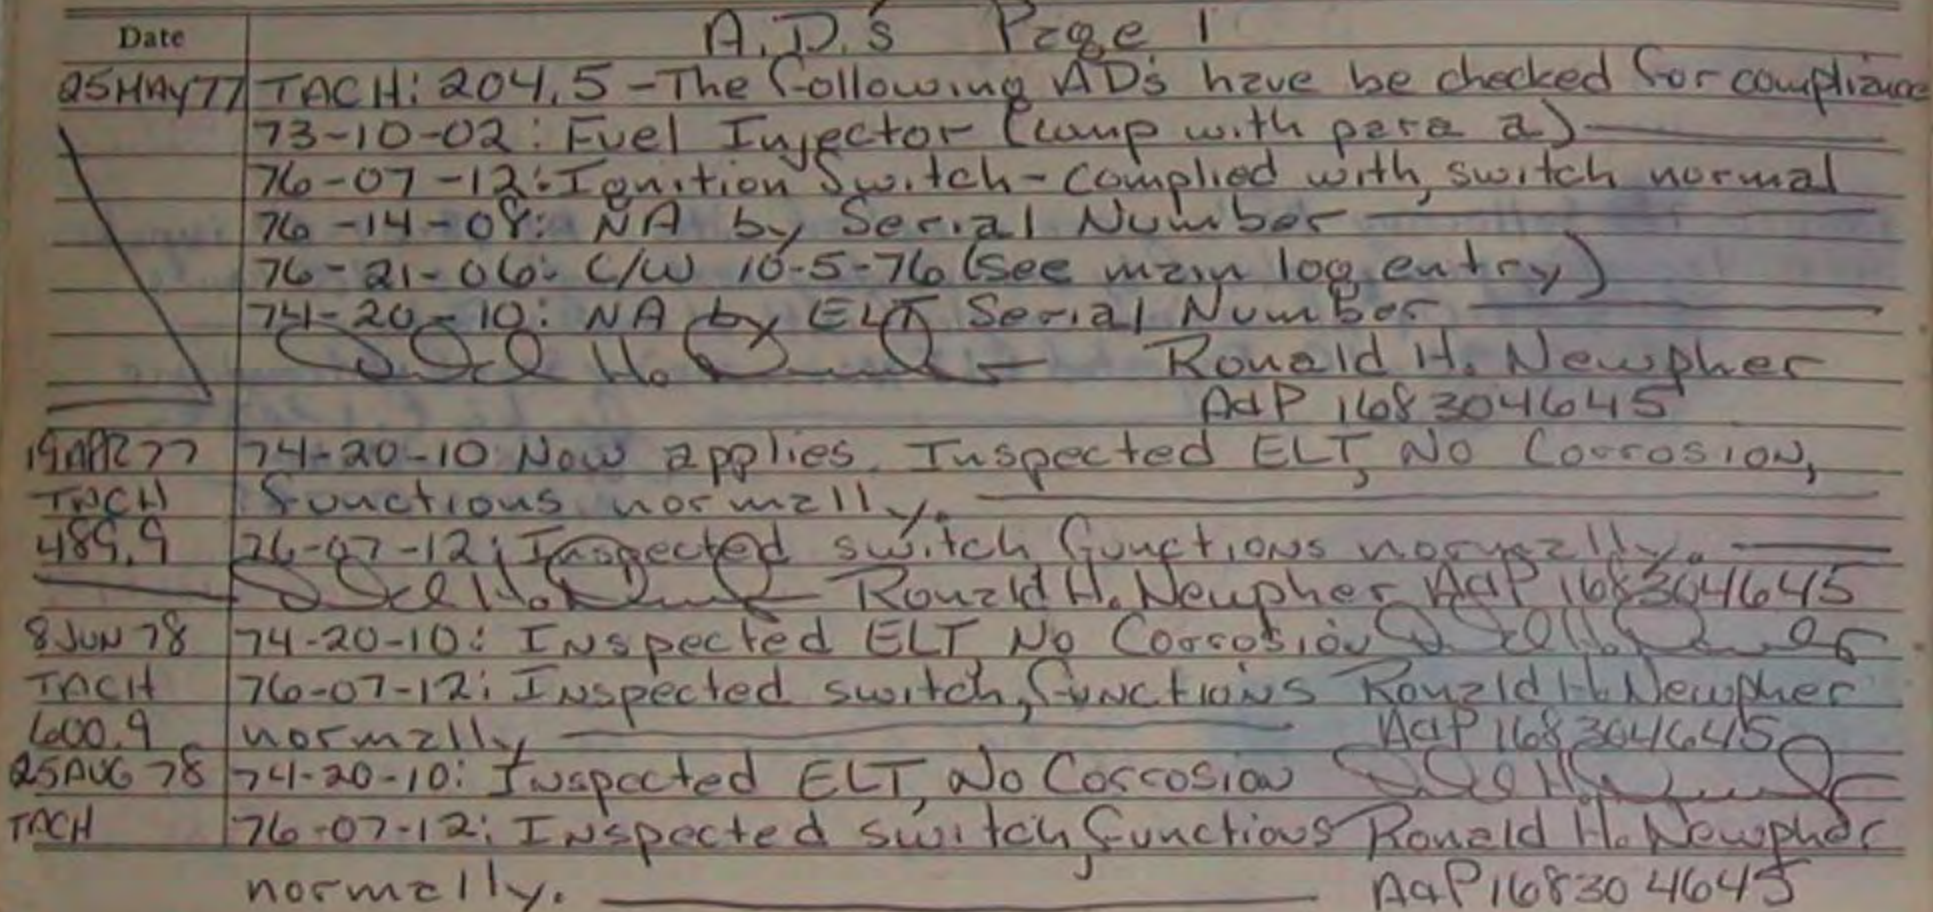 A.D.'s Page 1
Date
25MAY77 TACH: 204.5 - The following ADs have be checked for compliance
73-10-02: Fuel Injector (comp with para a)
76-07-12: Ignition Switch - Complied with, switch normal
76-14-08: NA by Serial Number
76-21-06: C/W 10-5-76 (see main log entry)
74-20-10: NA by ELT Serial Number
Ronald H. Newpher
A&P 168304645
19APR77 74-20-10 Now applies. Inspected ELT, No Corrosion,
TACH functions normally.
489.9 76-07-12: Inspected switch functions normally.
Ronald H. Newpher A&P 168304645
8JUN78 74-20-10: Inspected ELT No Corrosion
TACH 76-07-12: Inspected switch, functions Ronald H. Newpher
600.9 normally A&P 168304645
25AUG78 74-20-10: Inspected ELT, No Corrosion
TACH 76-07-12: Inspected switch, functions Ronald H. Newpher
normally. A&P 168304645